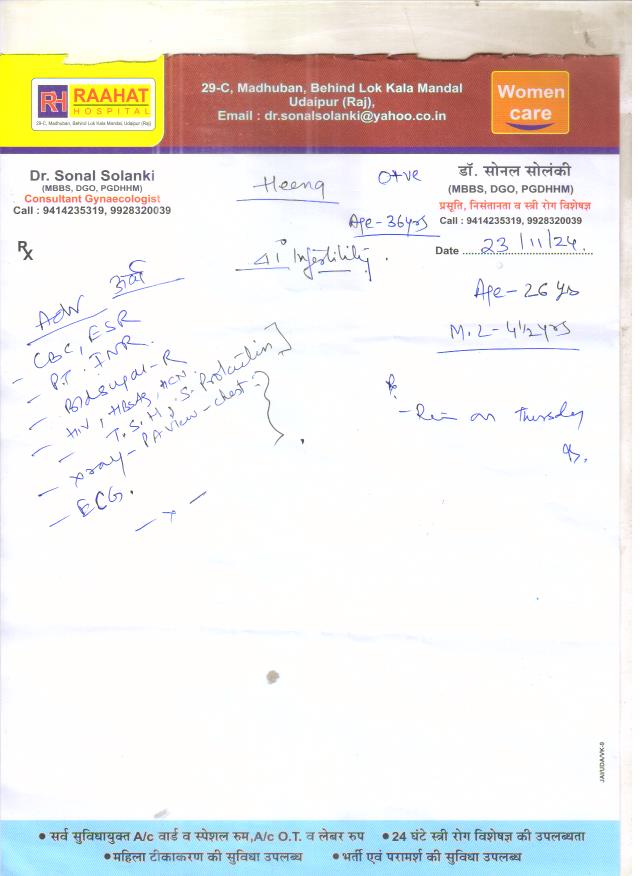 RH RAAHAT
HOSPITAL
29-C, Madhuban, Behind Lok Kala Mandal, Udaipur (Raj)
29-C, Madhuban, Behind Lok Kala Mandal
Udaipur (Raj),
Email : dr.sonalsolanki@yahoo.co.in
Women
care
Dr. Sonal Solanki
(MBBS, DGO, PGDHHM)
Consultant Gynaecologist
Call : 9414235319, 9928320039
Heena
O+ve
Age-36yrs
डॉ. सोनल सोलंकी
(MBBS, DGO, PGDHHM)
प्रसूति, निसंतानता व स्त्री रोग विशेषज्ञ
Call : 9414235319, 9928320039
Date 23/11/24.
Rx
1° Infertility.
Age-26 yrs
M.L-4½yrs
Adv
- CBC, ESR
- P.T. INR.
- Bldsugar-R
- HIV, HBsAg, HCV.
- T.S.H, S. Prolactin]
- xray-PA view-chest
- ECG.
- x -
- on Thursday
JAI/UDA/VK-9
• सर्व सुविधायुक्त A/c वार्ड व स्पेशल रुम,A/c O.T. व लेबर रुप • 24 घंटे स्त्री रोग विशेषज्ञ की उपलब्धता
• महिला टीकाकरण की सुविधा उपलब्ध • भर्ती एवं परामर्श की सुविधा उपलब्ध